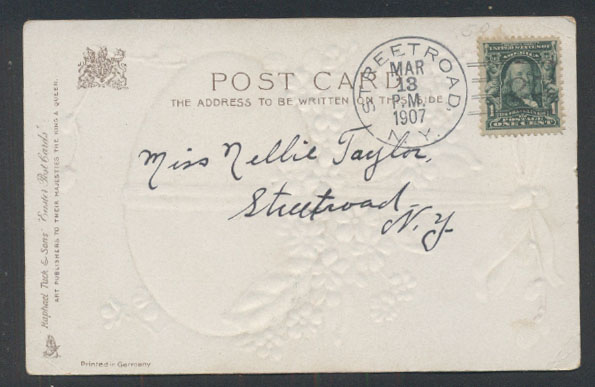 POST CARD
THE ADDRESS TO BE WRITTEN ON THIS SIDE
STREETROAD
MAR
13
P.M.
1907
N.Y.
UNITED STATES OF AMERICA
POSTAGE
ONE CENT
Miss Nellie Taylor,
Streetroad,
N.Y.
Raphael Tuck & Sons' "Easter Post Cards"
ART PUBLISHERS TO THEIR MAJESTIES THE KING & QUEEN.
Printed in Germany